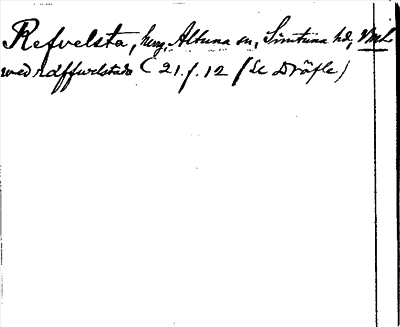 Refvelsta, hmg, Altuna sn, Simtuna hd, Vml.
wed räffwelstada (21/1. 12 (Se Dröfle)